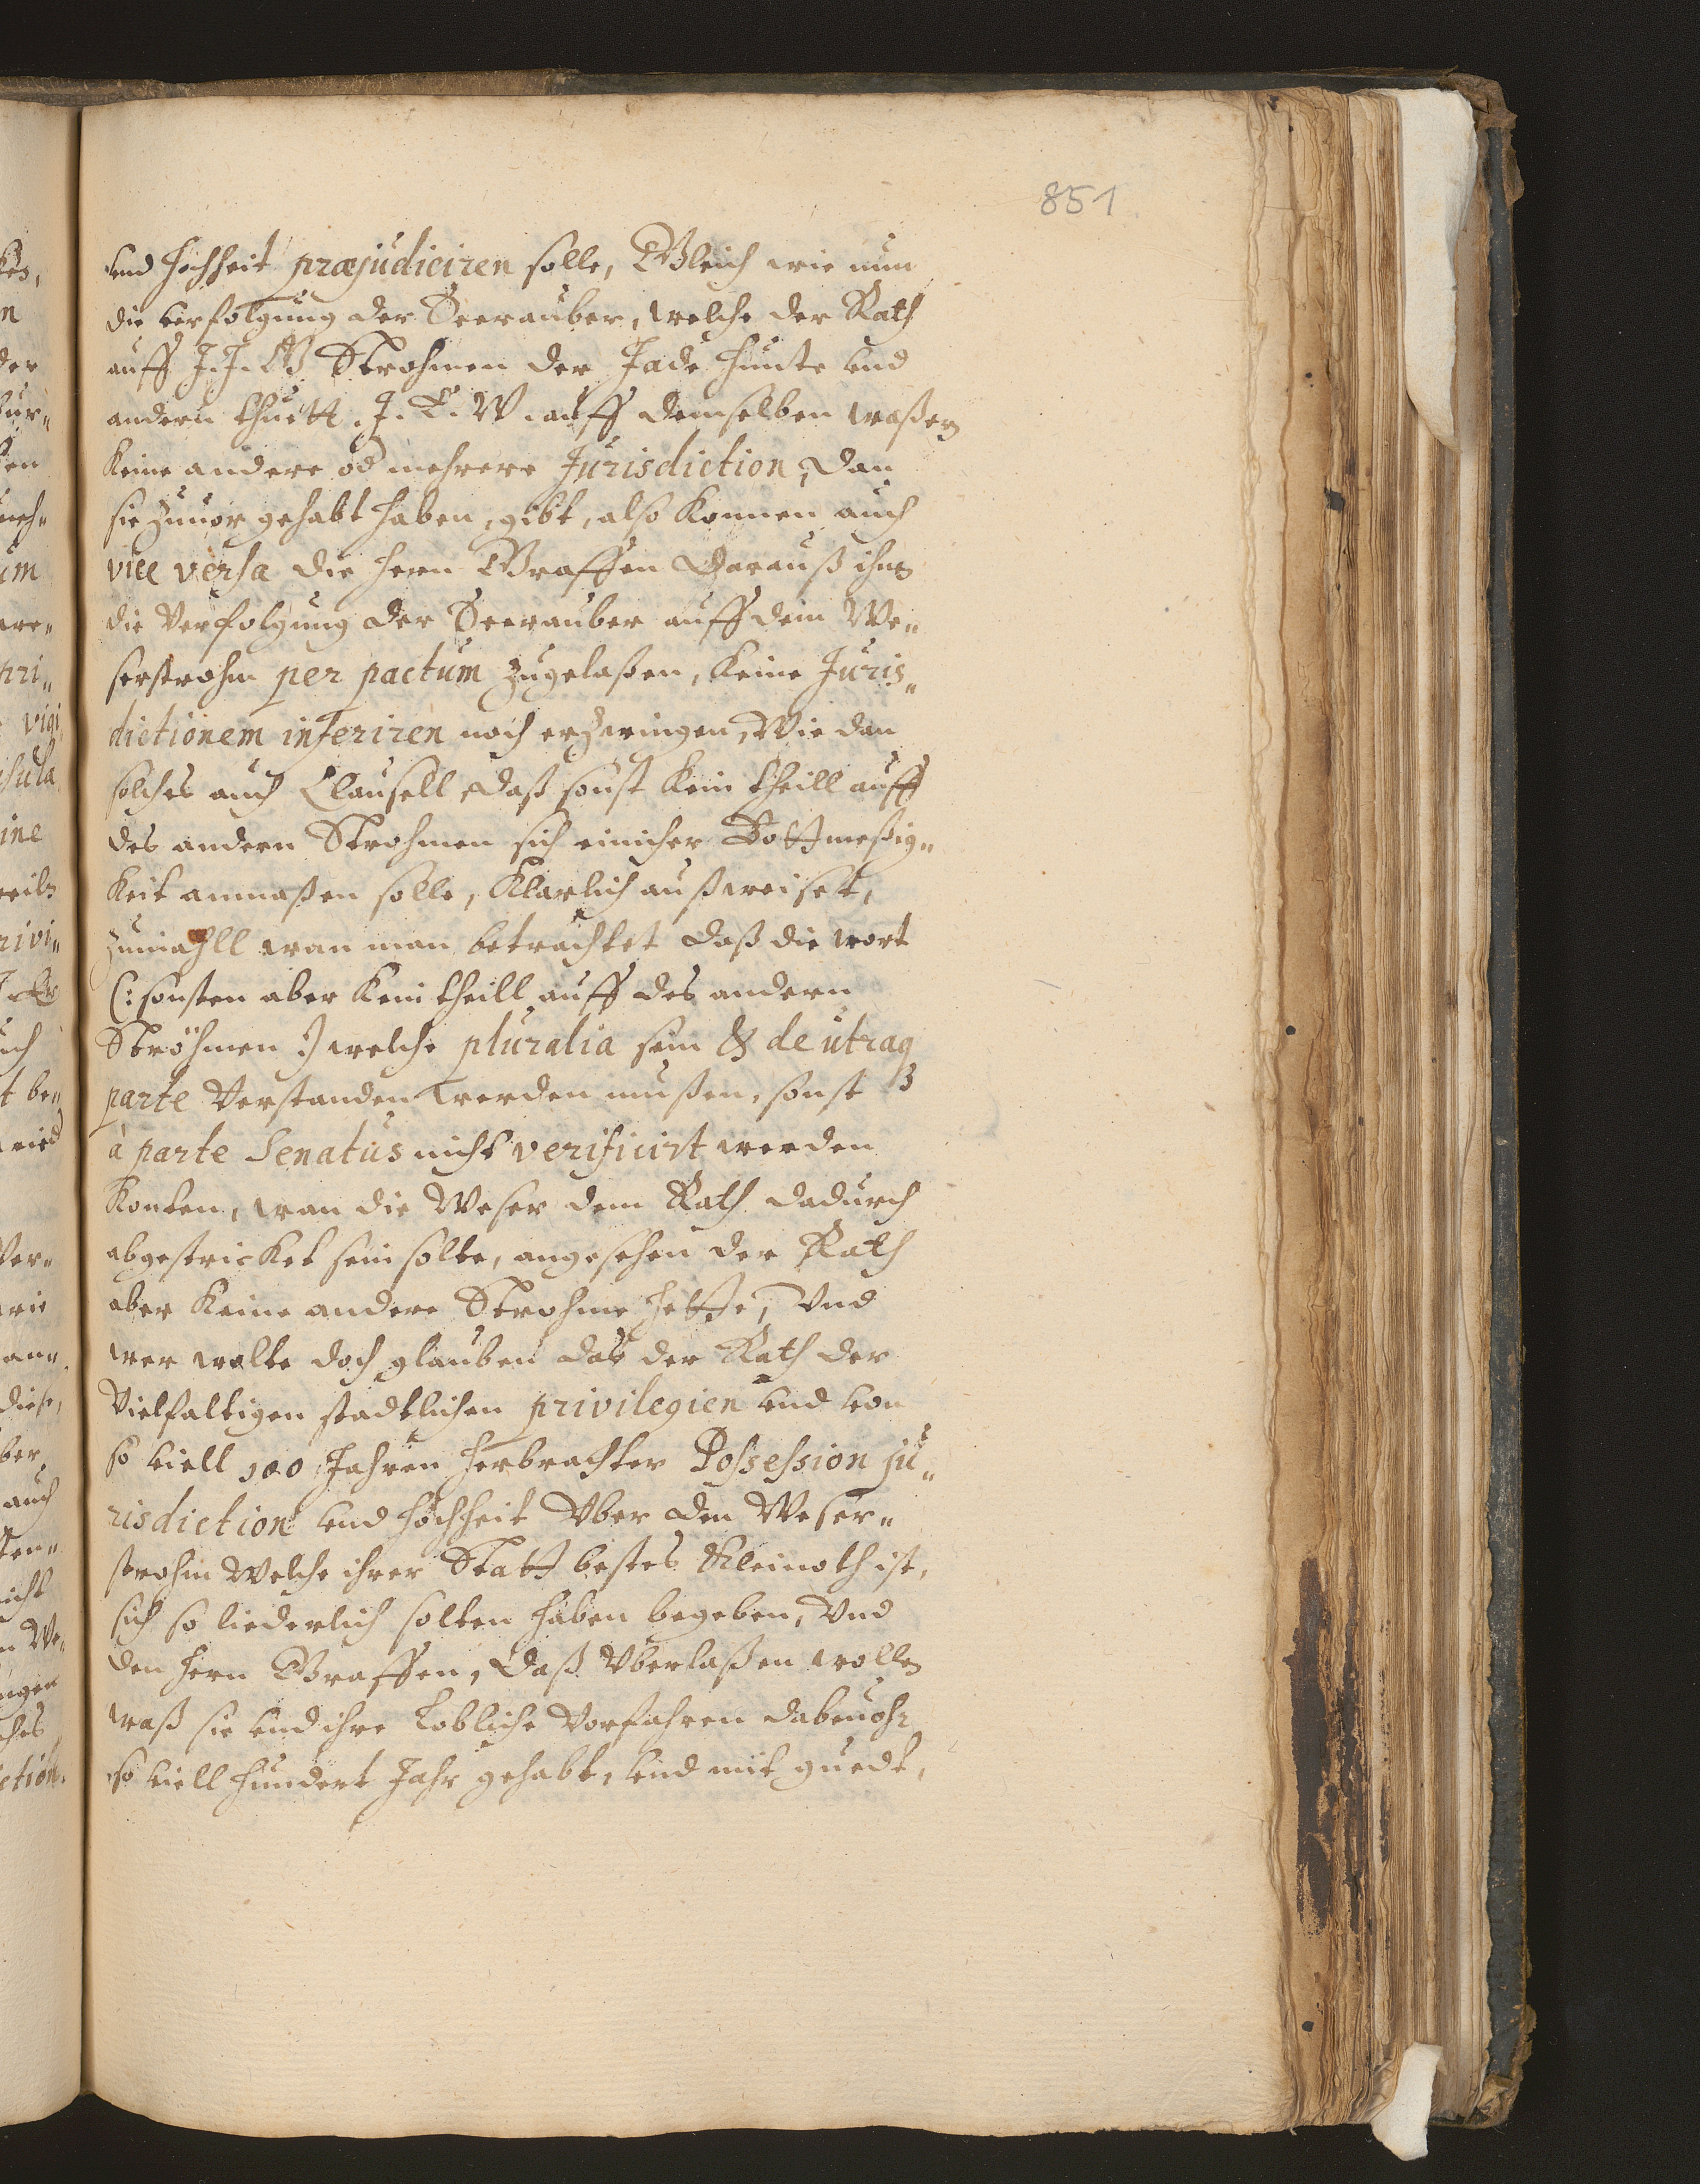 851
vnd hochheit præjudiciren solle, Gleich wie nun
die verfolgung der Seerauber, welche der Rath
auff J. J. G Strohmen der Jade Hunte vnd
andern thuett. J. E. W. auff demselben waßer
keine andere od mehrere Jurisdiction, dan
sie zuuor gehabt haben, gibt, also konnen auch
vice versa die herrn Graffen darauß ihn
die verfolgung der Seerauber auff dem We„
serstrohm per pactum zugelaßen, keine Juris„
dictionem inferiren noch erzwingen, Wie dan
solches auch Clausell daß sonst kein theill auff
des andern Strohmen sich einicher Bottmeßig„
keit anmaßen solle, klarlich außweiset,
zumahll wan man betrachtet daß die wort
(: sonsten aber kein theill auff des andern
Ströhmen :) welche pluralia sein & de utraq
parte verstanden werden mußen, sonst
à parte Senatus nicht verificirt werden
konten, wan die Weser dem Rath dadurch
abgestricket sein solte, angesehen der Rath
aber keine andere Strohme hette, Vnd
wer wolte doch glauben das der Rath der
vielfaltigen stadtlichen privilegien vnd von
so viell 100 Jahren herbrachter Possession ju„
risdiction vnd hochheit vber den Weser„
strohm Welche ihrer Statt bestes Kleinoth ist,
sich so liederlich solten haben begeben, Vnd
den herrn Graffen, daß vberlaßen wollen
waß sie vnd ihre Lobliche Vorfahren dabeuohr
so viell hundert Jahr gehabt, vnd mit guedt,